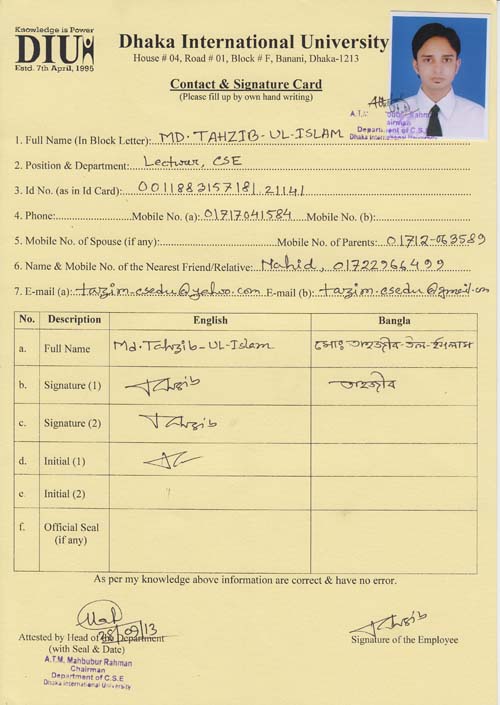 Knowledge is Power
DIU
Estd. 7th April, 1995
Dhaka International University
House # 04, Road # 01, Block # F, Banani, Dhaka-1213
Contact & Signature Card
(Please fill up by own hand writing)
A.T.M. Mahbubur Rahman
Chairman
Department of C.S.E
Dhaka International University
1. Full Name (In Block Letter): MD. TAHZIB-UL-ISLAM
2. Position & Department: Lecturer, CSE
3. Id No. (as in Id Card): 0011883157181, 21141
4. Phone: Mobile No. (a): 01717041584 Mobile No. (b):
5. Mobile No. of Spouse (if any): Mobile No. of Parents: 01712-063589
6. Name & Mobile No. of the Nearest Friend/Relative: Nahid, 01722966499
7. E-mail (a): tazim.csedu@yahoo.com E-mail (b): tazim.csedu@gmail.com
No. Description English Bangla
a. Full Name Md. Tahzib-UL-Islam মোঃ তাহজীব-উল-ইসলাম
b. Signature (1) Tahzib তাহজীব
c. Signature (2) Tahzib
d. Initial (1)
e Initial (2)
f. Official Seal
(if any)
As per my knowledge above information are correct & have no error.
28/09/13
Tahzib
Attested by Head of the Department
Signature of the Employee
(with Seal & Date)
A.T.M. Mahbubur Rahman
Chairman
Department of C.S.E
Dhaka International University